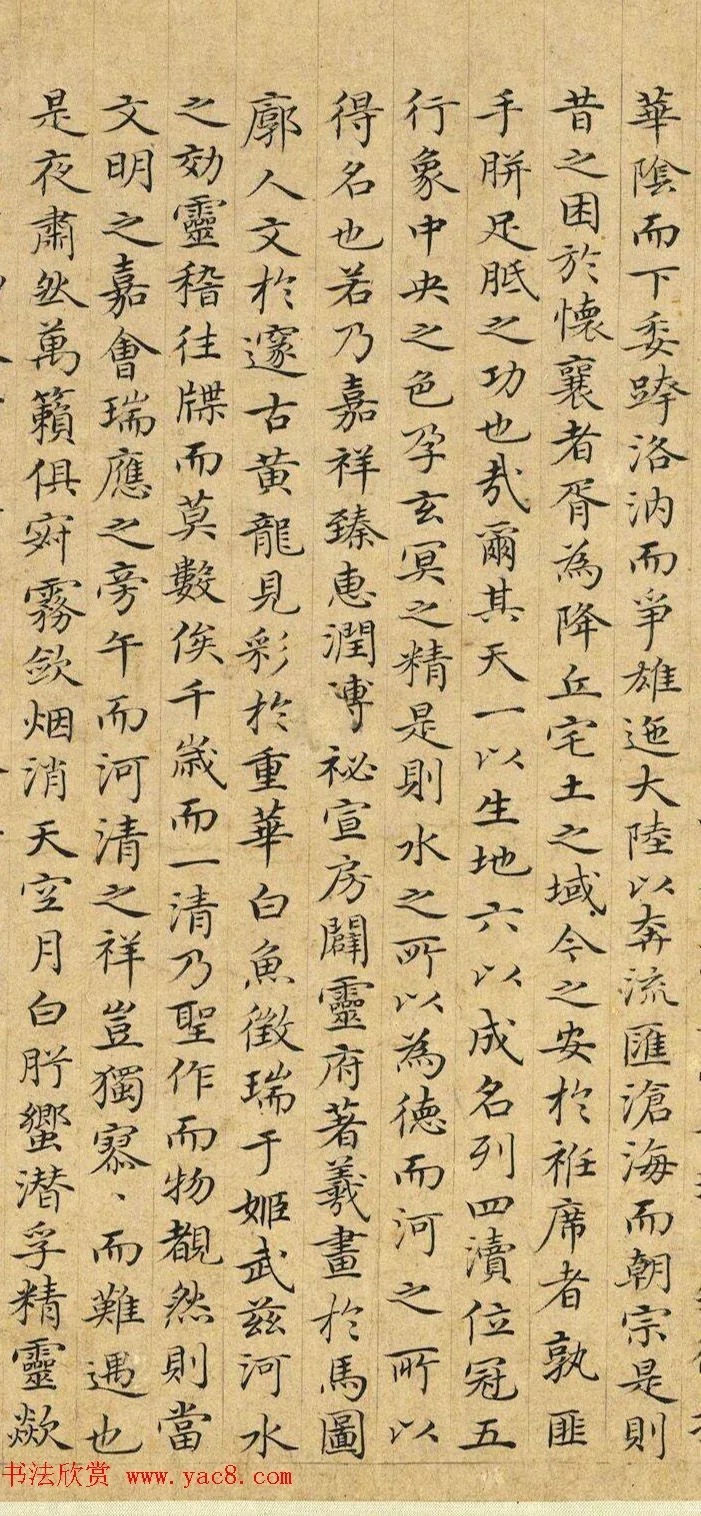 華陰而下委跨洛汭而爭雄迤大陸以奔流匯滄海而朝宗是則
昔之困於懷襄者胥為降丘宅土之域今之安於袵席者孰匪
手胼足胝之功也㢤爾其天一以生地六以成名列四瀆位冠五
行象中央之色孕玄冥之精是則水之所以為德而河之所以
得名也若乃嘉祥臻惠潤溥祕宣房闢靈府著羲畫於馬圖
廓人文於邃古黃龍見彩於重華白魚徵瑞于姬武茲河水
之効靈稽往牒而莫數俟千歲而一清乃聖作而物覩然則當
文明之嘉會瑞應之旁午而河清之祥豈獨寥、而難遇也
是夜肅然萬籟俱寂霧歛烟消天空月白肹蠁潜孚精靈歘
书法欣赏 www.yac8.com